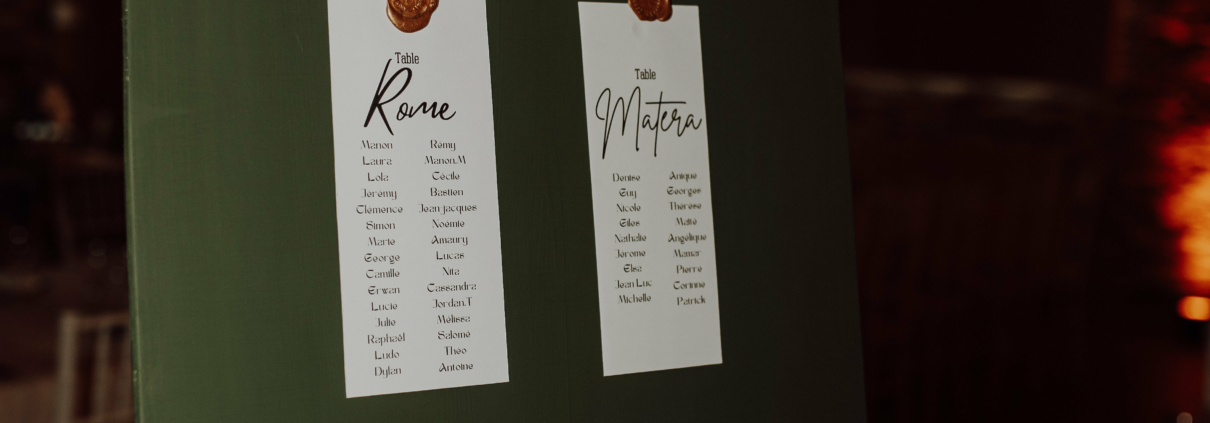 Table
Rome
Manon Rémy
Laura Manon.M
Lola Cécile
Jeremy Bastien
Clémence Jean jacques
Simon Noémie
Marie Amaury
George Lucas
Camille Nita
Erwan Cassandra
Lucie Jordan.T
Julie Mélissa
Raphaël Salomé
Ludo Théo
Dylan Antoine
Table
Matera
Denise Anique
Guy Georges
Nicole Thérèse
Giles Maïté
Nathalie Angélique
Jerome Mamar
Elsa Pierre
Jean Luc Corinne
Michelle Patrick